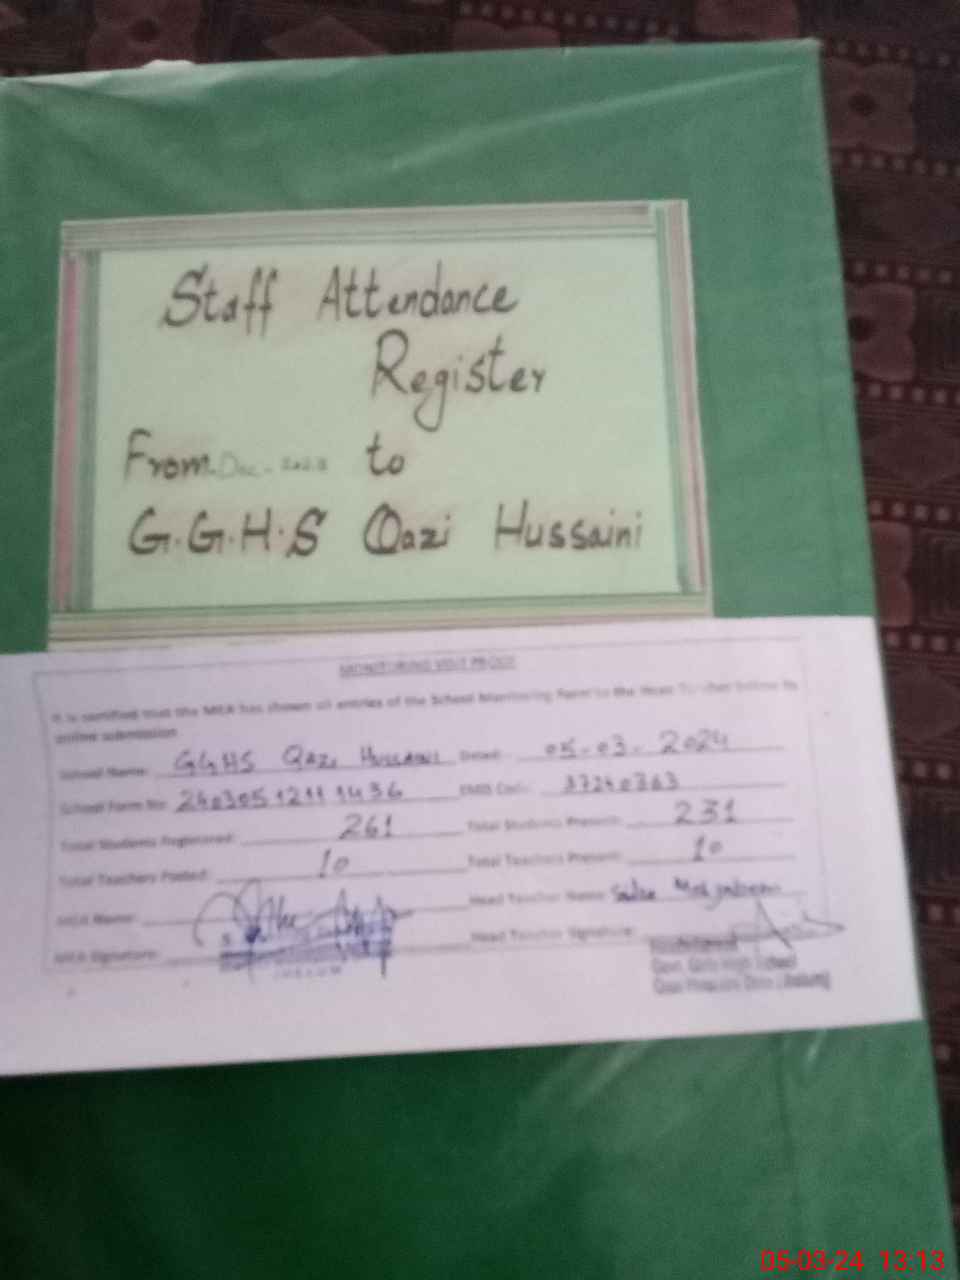 Staff Attendance
Register
From Dec - 2023 to
G.G.H.S Qazi Hussaini
MONITORING VISIT PROOF
It is certified that the MEA has shown all entries of the School Monitoring Form to the Head Teacher before its
online submission
School Name: GGHS Qazi Hussaini Dated: 05-03-2024
School Form No: EMIS Code: 37240363
Total Students Registered: 261 Total Students Present: 231
Total Teachers Posted: 10 Total Teachers Present: 10
MEA Name: Head Teacher Name:
MEA Signature: Head Teacher Signature:
JHELUM
Govt. Girls High School
05-03-24 13:13